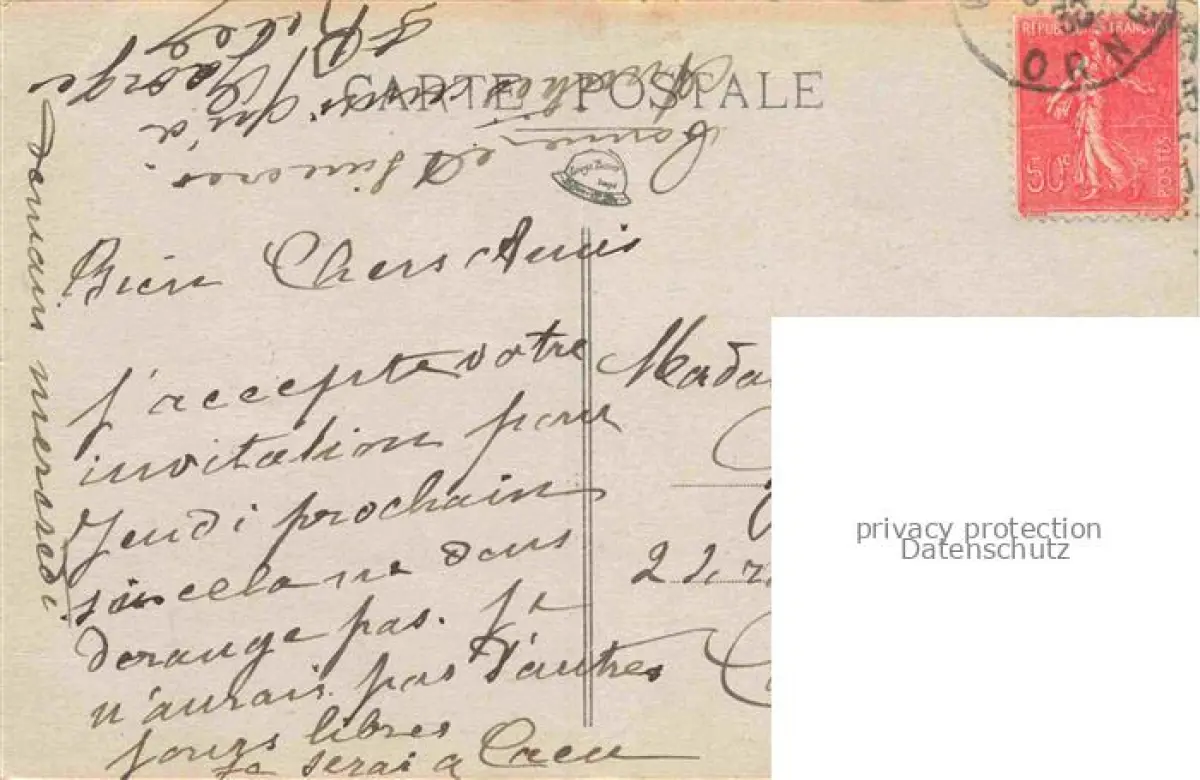 CARTE POSTALE
REPUBLIQUE FRANÇAISE
50c
POSTES
ORN
Bien Chers Amis
J'accepte votre
invitation pour
Jeudi prochain
si cela ne vous
derange pas. Je
n'aurais pas d'autres
jours libres
Je serai a Caen
demain mercredi
ainsi qu'à
George
Mada
22, r
privacy protection
Datenschutz